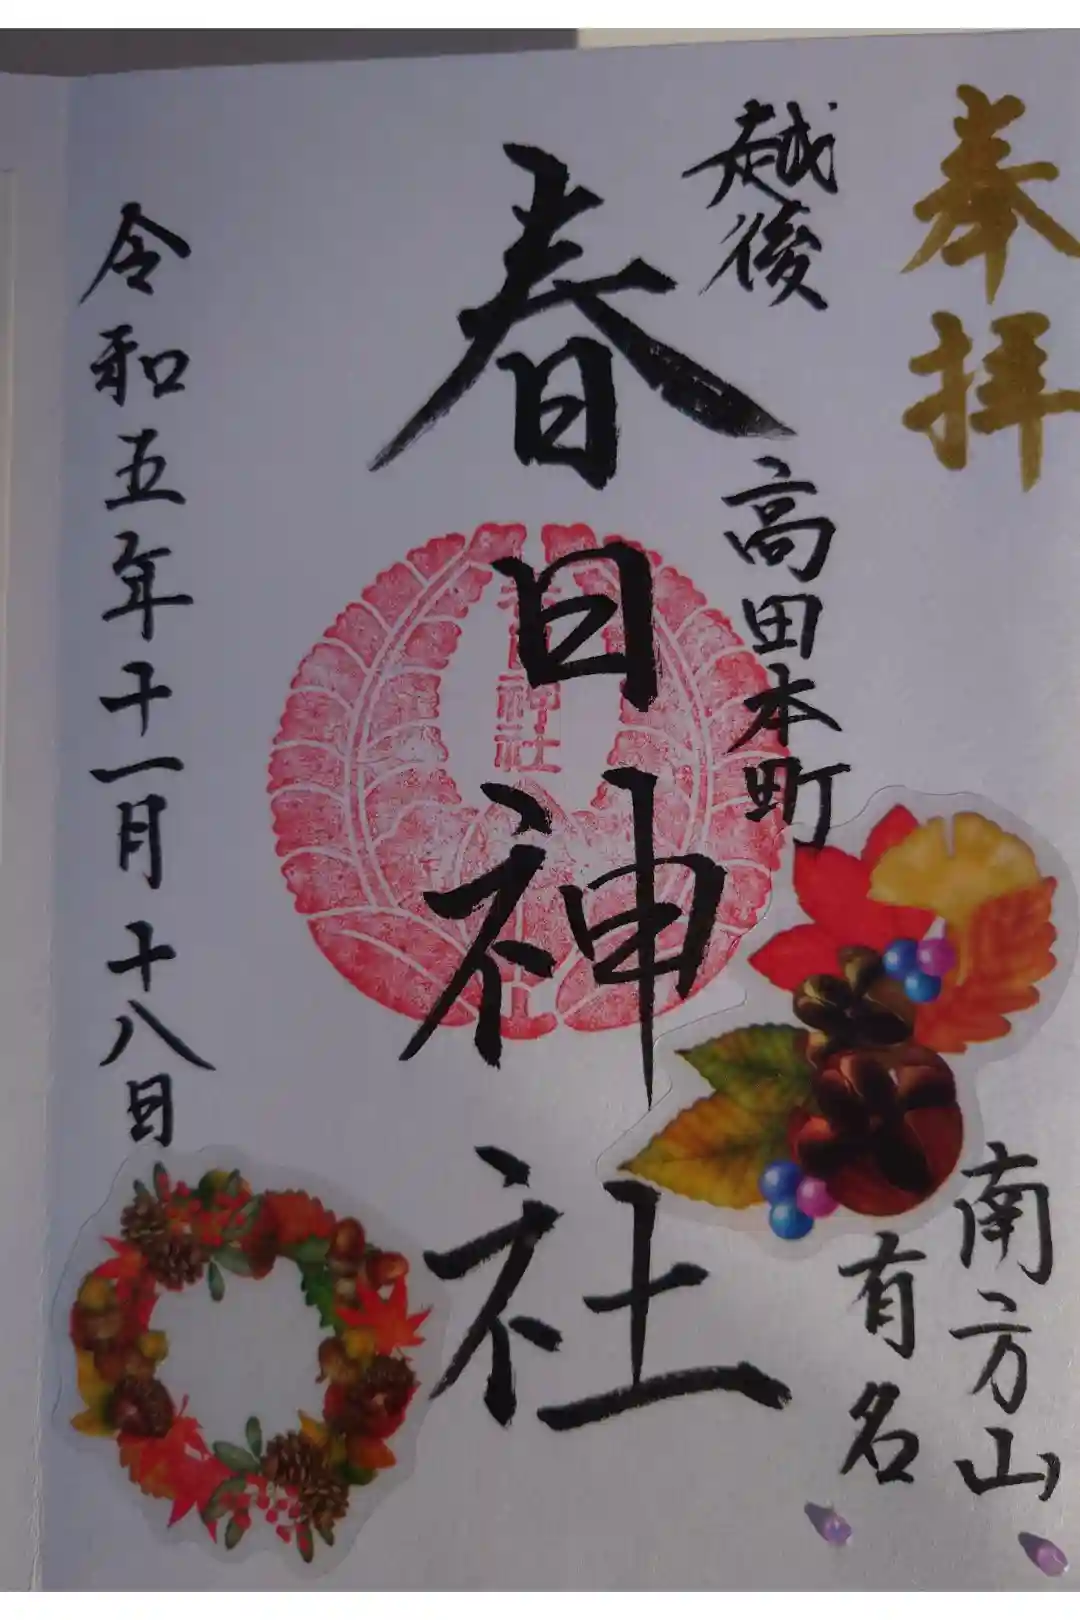 奉拝
越後 高田本町
春日神社
春日神社
南方山
有名
令和五年十一月十八日